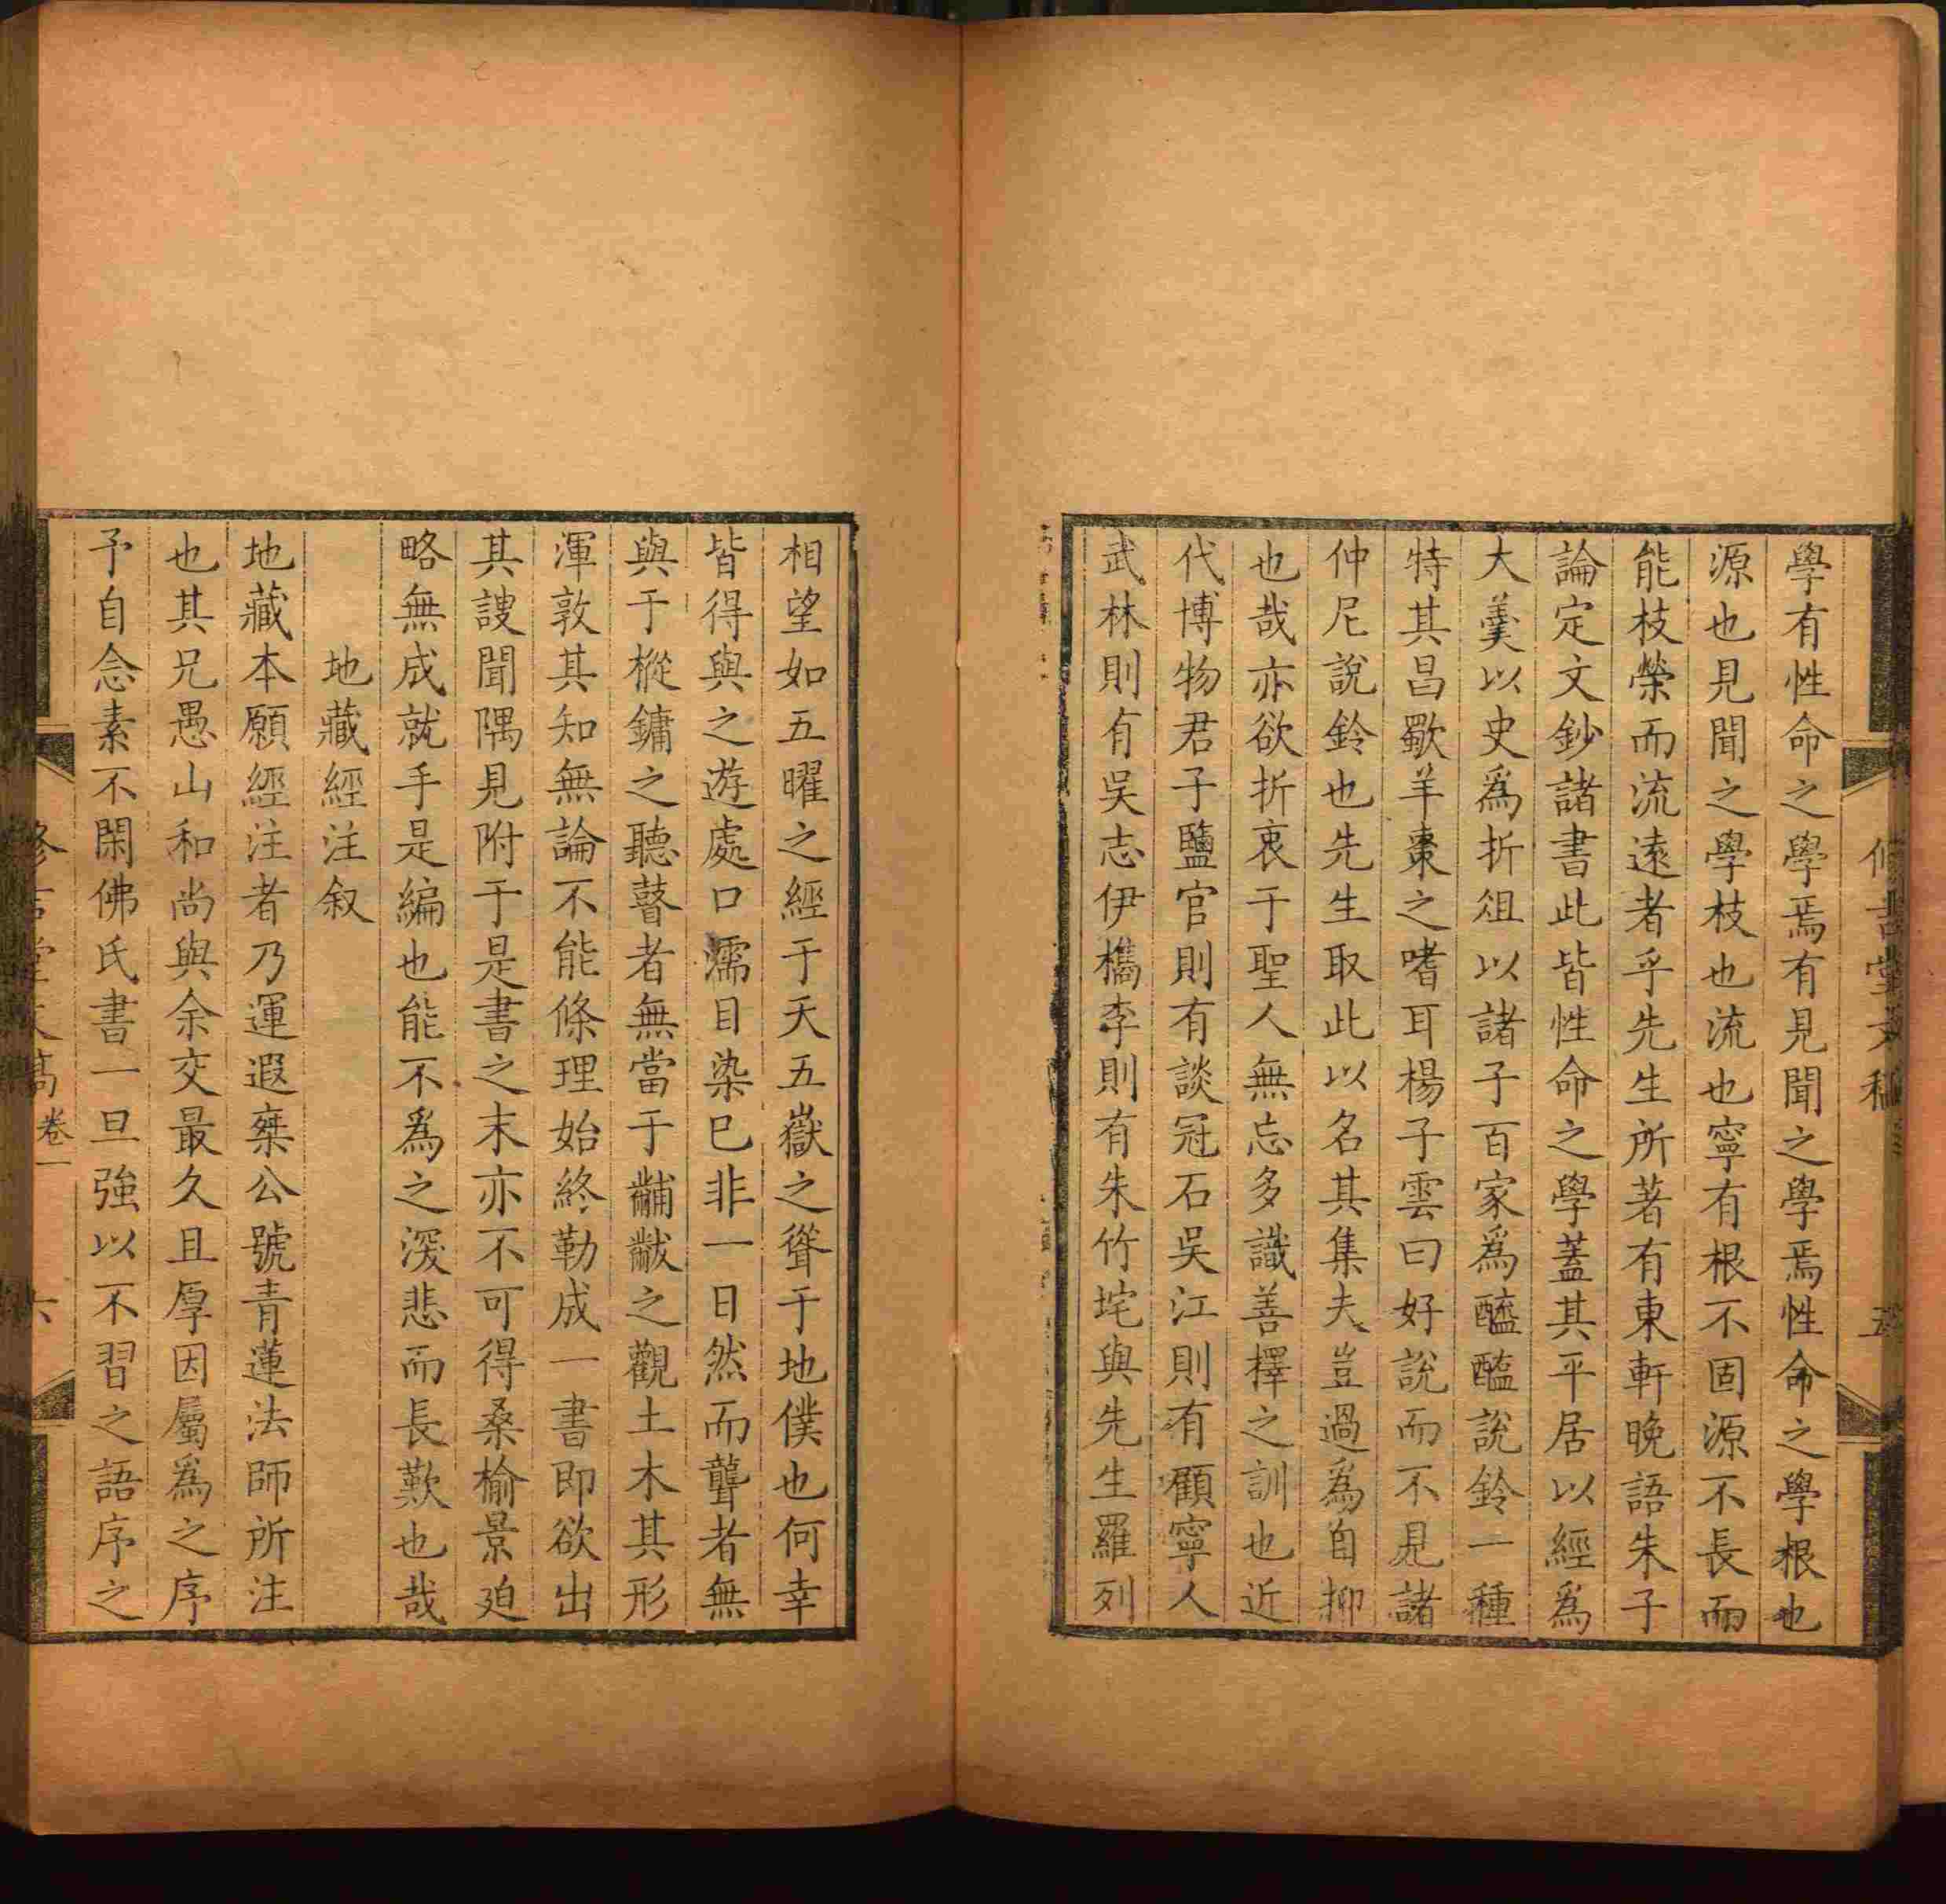 學有性命之學焉有見聞之學焉性命之學根也
源也見聞之學枝也流也寧有根不固源不長而
能枝榮而流遠者乎先生所著有東軒晚語朱子
論定文鈔諸書此皆性命之學蓋其平居以經爲
大羹以史爲折俎以諸子百家爲醯醢說鈴一種
特其昌歜羊棗之嗜耳楊子雲曰好說而不見諸
仲尼說鈴也先生取此以名其集夫豈過爲自抑
也哉亦欲折衷于聖人無忘多識善擇之訓也近
代博物君子鹽官則有談冠石吳江則有顧寧人
武林則有吳志伊檇李則有朱竹垞與先生羅列
相望如五曜之經于天五嶽之聳于地僕也何幸
皆得與之遊處口濡目染巳非一日然而聾者無
與于樅鏞之聽瞽者無當于黼黻之觀土木其形
渾敦其知無論不能條理始終勒成一書即欲出
其謏聞隅見附于是書之末亦不可得桑榆景廹
略無成就手是編也能不爲之深悲而長歎也哉
地藏經注叙
地藏本願經注者乃運遐棻公號青蓮法師所注
也其兄愚山和尚與余交最久且厚因屬爲之序
予自念素不閑佛氏書一旦強以不習之語序之
卷一
六